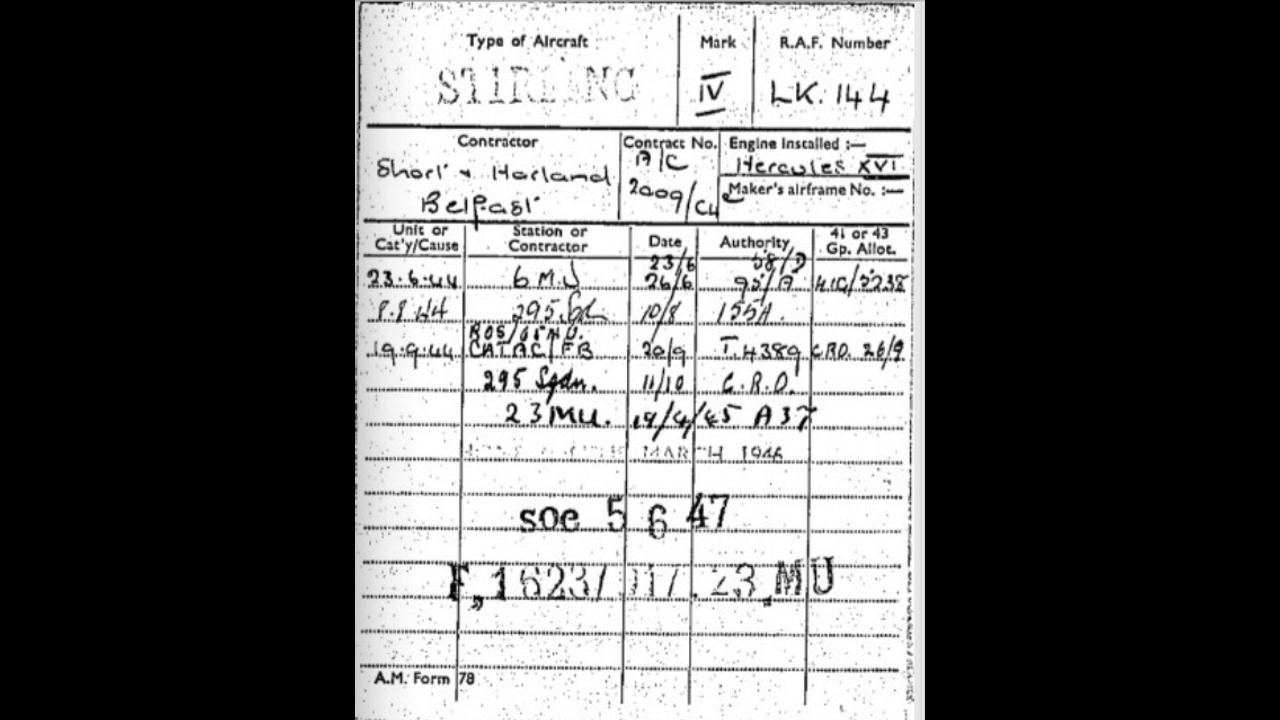 Type of Aircraft Mark R.A.F. Number
STIRLING IV LK. 144
Contractor Contract No. Engine Installed :—
Short & Harland A/C Hercules XVI
Belfast 2009/C4 Maker's airframe No. :—
Unit or Cat'y/Cause Station or Contractor Date Authority 41 or 43 Gp. Allot.
23/6 58/D
23.6.44 6 M.U 26/6 95/A 41G/5238
8.8.44 295. 10/8 155A.
19.9.44 CATAC/FB 20/9 T.4389 CRD. 26/9
295 Sqdn. 11/10 C.R.D.
23 MU. 19/4/45 A37
MARCH 1946
soe 5 6 47
F,1623/ 23.MU
A.M. Form 78